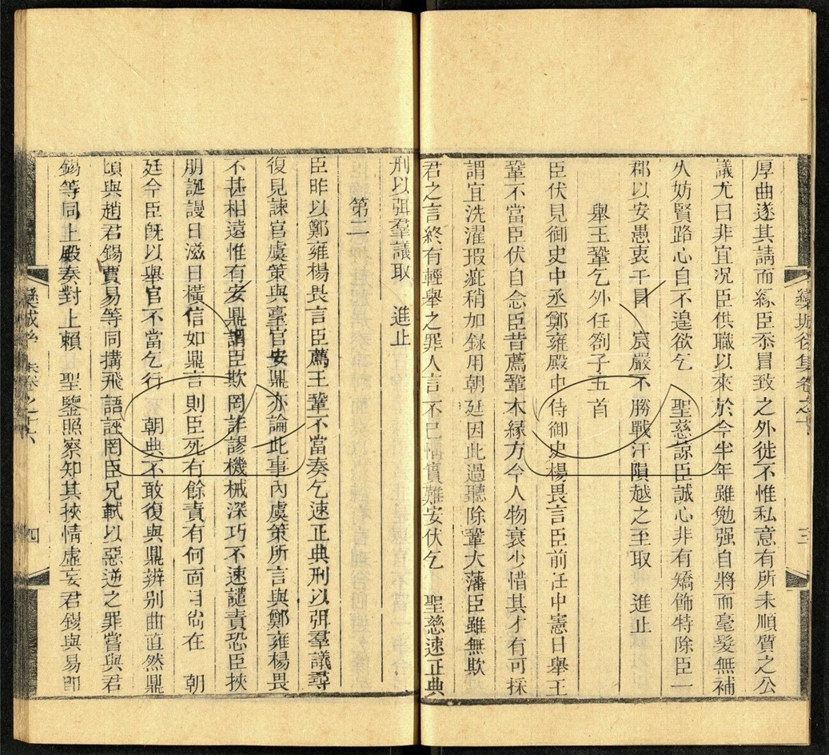 厚曲遂其請而綠臣忝冒致之外徙不惟私意有所未順質之公
議尤曰非宜况臣供職以來於今半年雖勉强自將而毫髮無補
久妨賢路心自不遑欲乞 聖慈諒臣誠心非有矯飾特除臣一
郡以安愚衷干冒 宸嚴不勝戰汗隕越之至取 進止
舉王鞏乞外任劄子五首
臣伏見御史中丞鄭雍殿中侍御史楊畏言臣前任中憲日舉王
鞏不當臣伏自念臣昔薦鞏本緣方今人物衰少惜其才有可採
謂宜洗濯瑕疵稍加錄用朝廷因此過聽除鞏大藩臣雖無欺
君之言終有輕舉之罪人言不已情實難安伏乞 聖慈速正典
刑以弭羣議取 進止
第二
臣昨以鄭雍楊畏言臣薦王鞏不當奏乞速正典刑以弭羣議尋
復見諫官虞策與臺官安鼎亦論此事內虞策所言與鄭雍楊畏
不甚相遠惟有安鼎謂臣欺罔詐謬機械深巧不速譴責恐臣挾
朋誕謾日滋日橫信如鼎言則臣死有餘責有何面目尙在 朝
廷今臣旣以舉官不當乞行 朝典不敢復與鼎辨别曲直然鼎
頃與趙君錫賈易等同搆飛語誣罔臣兄軾以惡逆之罪嘗與君
錫等同上殿奏對上賴 聖鑒照察知其挾情虛妄君錫與易即
欒城後集卷之十六
三
欒城後集卷之十六
四